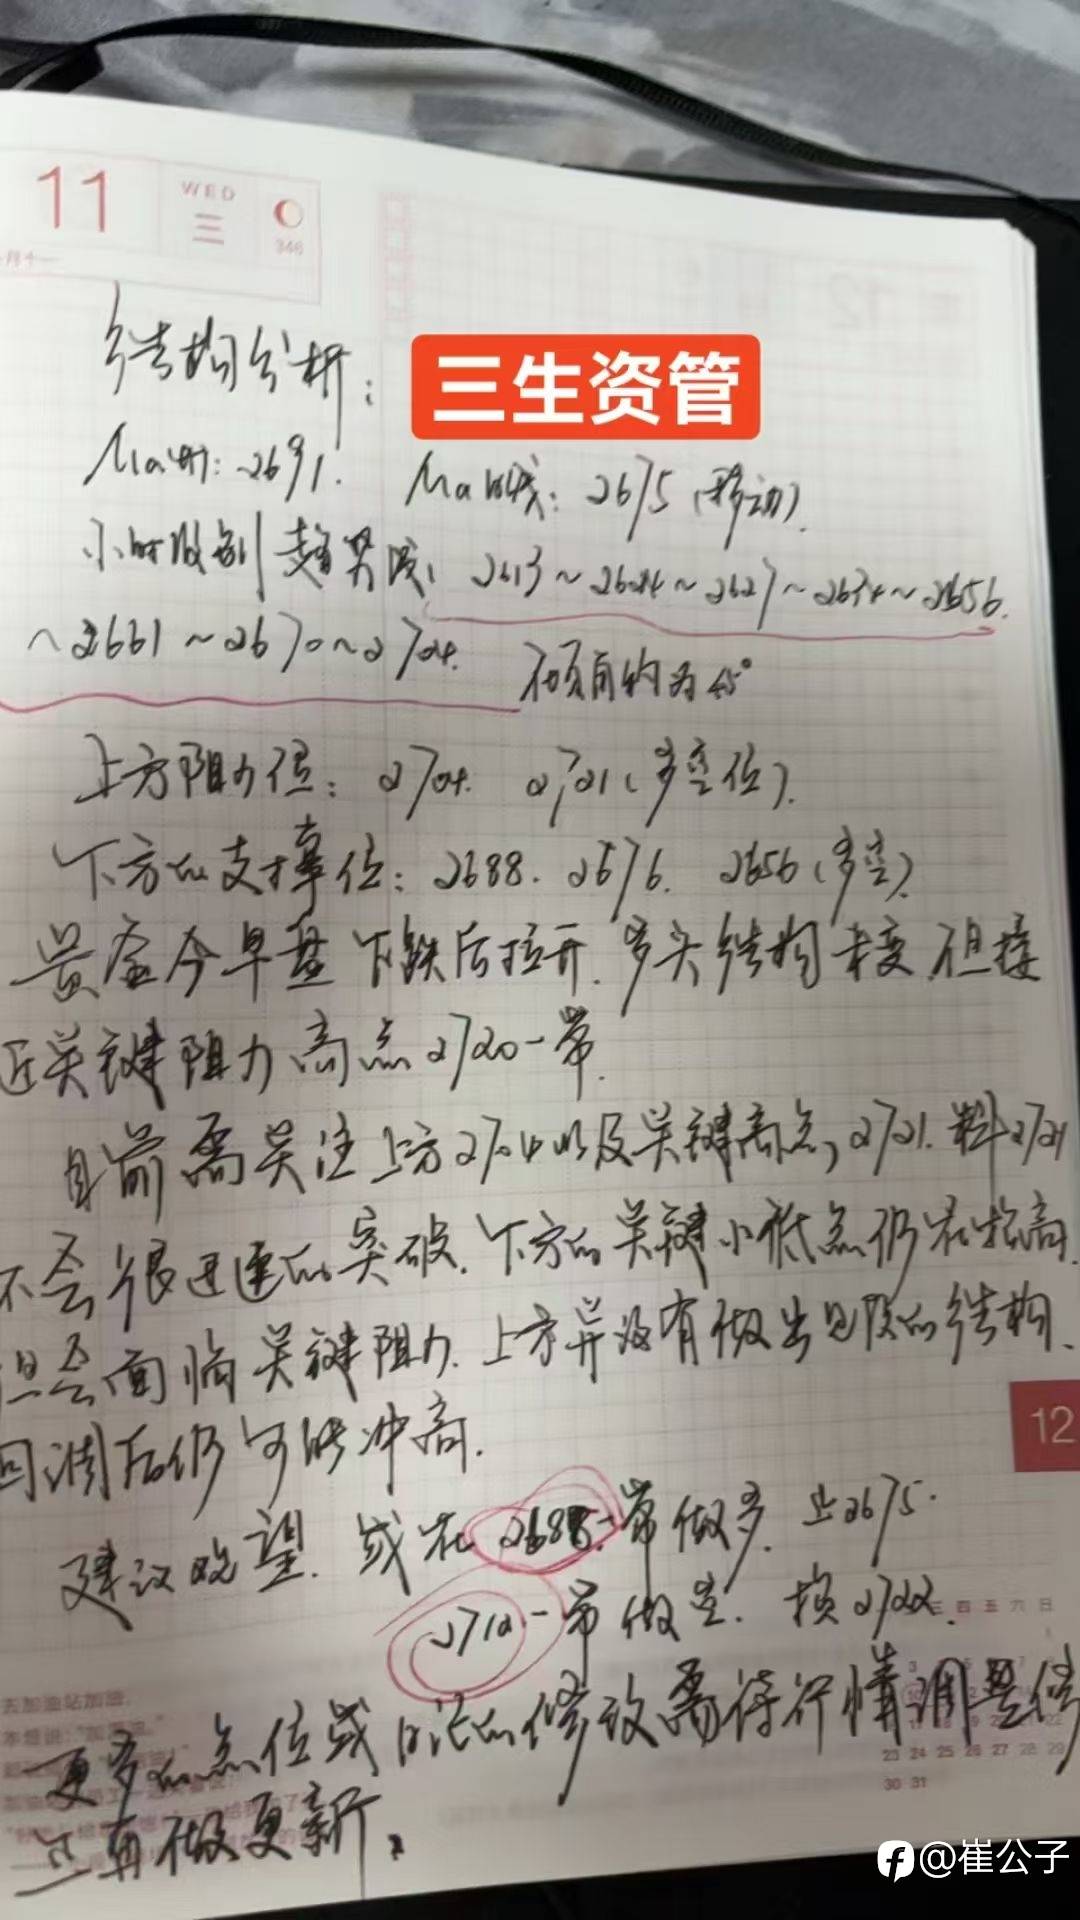 11
WED
三
346
结构分析：
三生资管
Ma时：2691.
Ma日线：2675（移动）.
小时级别趋势段：2613～2624～2627～2634～2656.
～2661～2670～2704. 倾角约为45°
上方阻力位：2704. 2721（多空位）.
下方的支撑位：2688. 2676. 2656（多空）.
黄金今早盘下跌后拉升.多头结构未变但接
近关键阻力高点2720一带.
目前需关注上方2704以及关键高点，2721.料2721
不会很迅速的突破.下方的关键小低点仍在抬高.
但会面临关键阻力.上方并没有做出见顶的结构.
回调后仍可能冲高.
12
建议观望.或在2688一带做多.止2675.
2712一带做空.损2722.
更多的点位或日内的修改需待行情调整修
正再做更新.
三 四 五 六 日
23 24 25 26 27 28 29
30 31
去加油站加油.
@崔公子